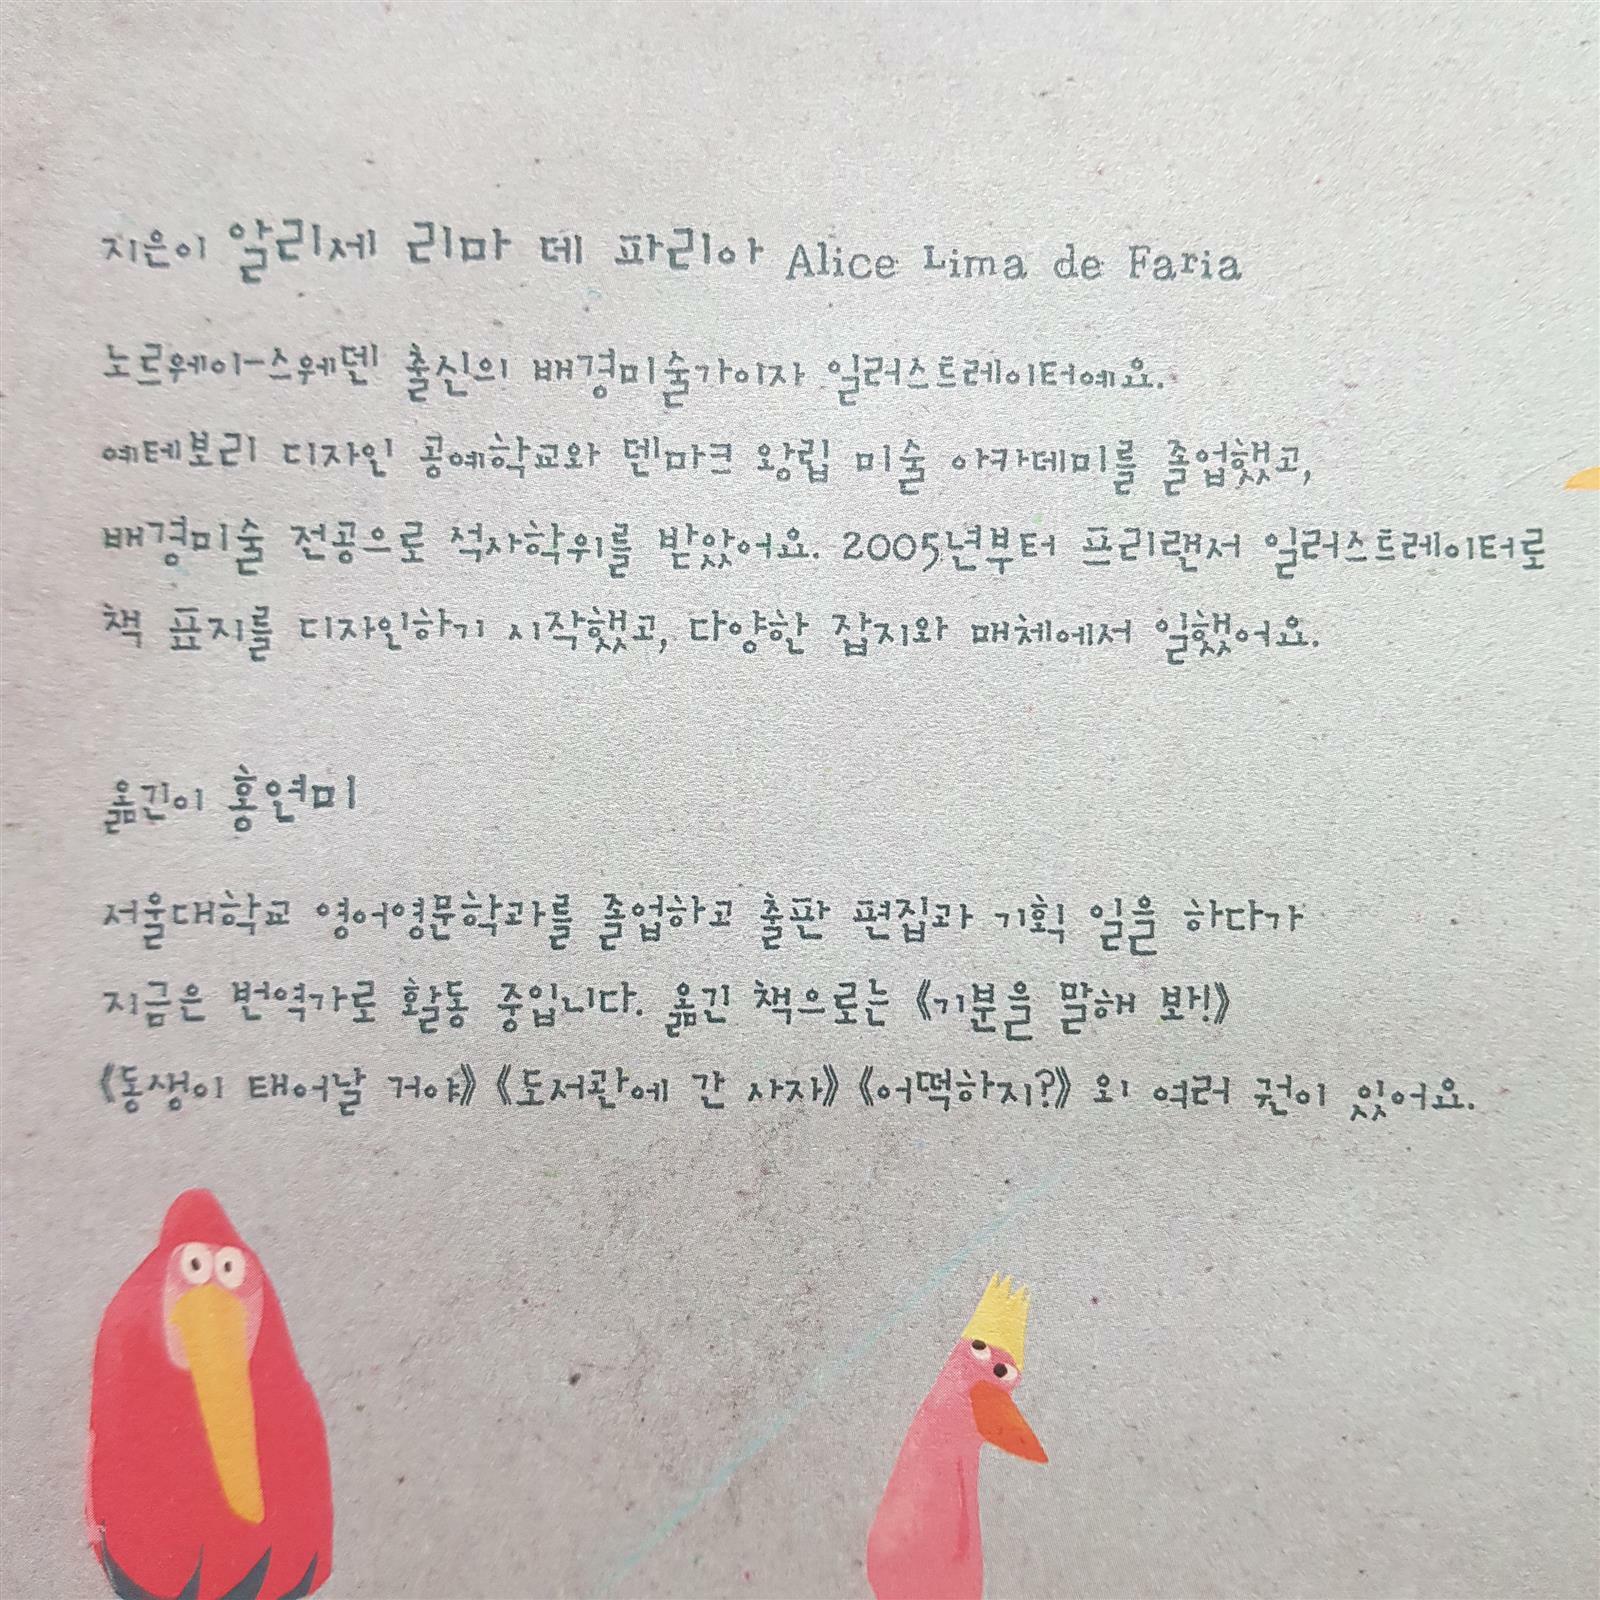 지은이 알리세 리마 데 파리아 Alice Lima de Faria
노르웨이-스웨덴 출신의 배경미술가이자 일러스트레이터예요.
예테보리 디자인 공예학교와 덴마크 왕립 미술 아카데미를 졸업했고,
배경미술 전공으로 석사학위를 받았어요. 2005년부터 프리랜서 일러스트레이터로
책 표지를 디자인하기 시작했고, 다양한 잡지와 매체에서 일했어요.
옮긴이 홍연미
서울대학교 영어영문학과를 졸업하고 출판 편집과 기획 일을 하다가
지금은 번역가로 활동 중입니다. 옮긴 책으로는 《기분을 말해 봐!》
《동생이 태어날 거야》 《도서관에 간 사자》 《어떡하지?》 외 여러 권이 있어요.